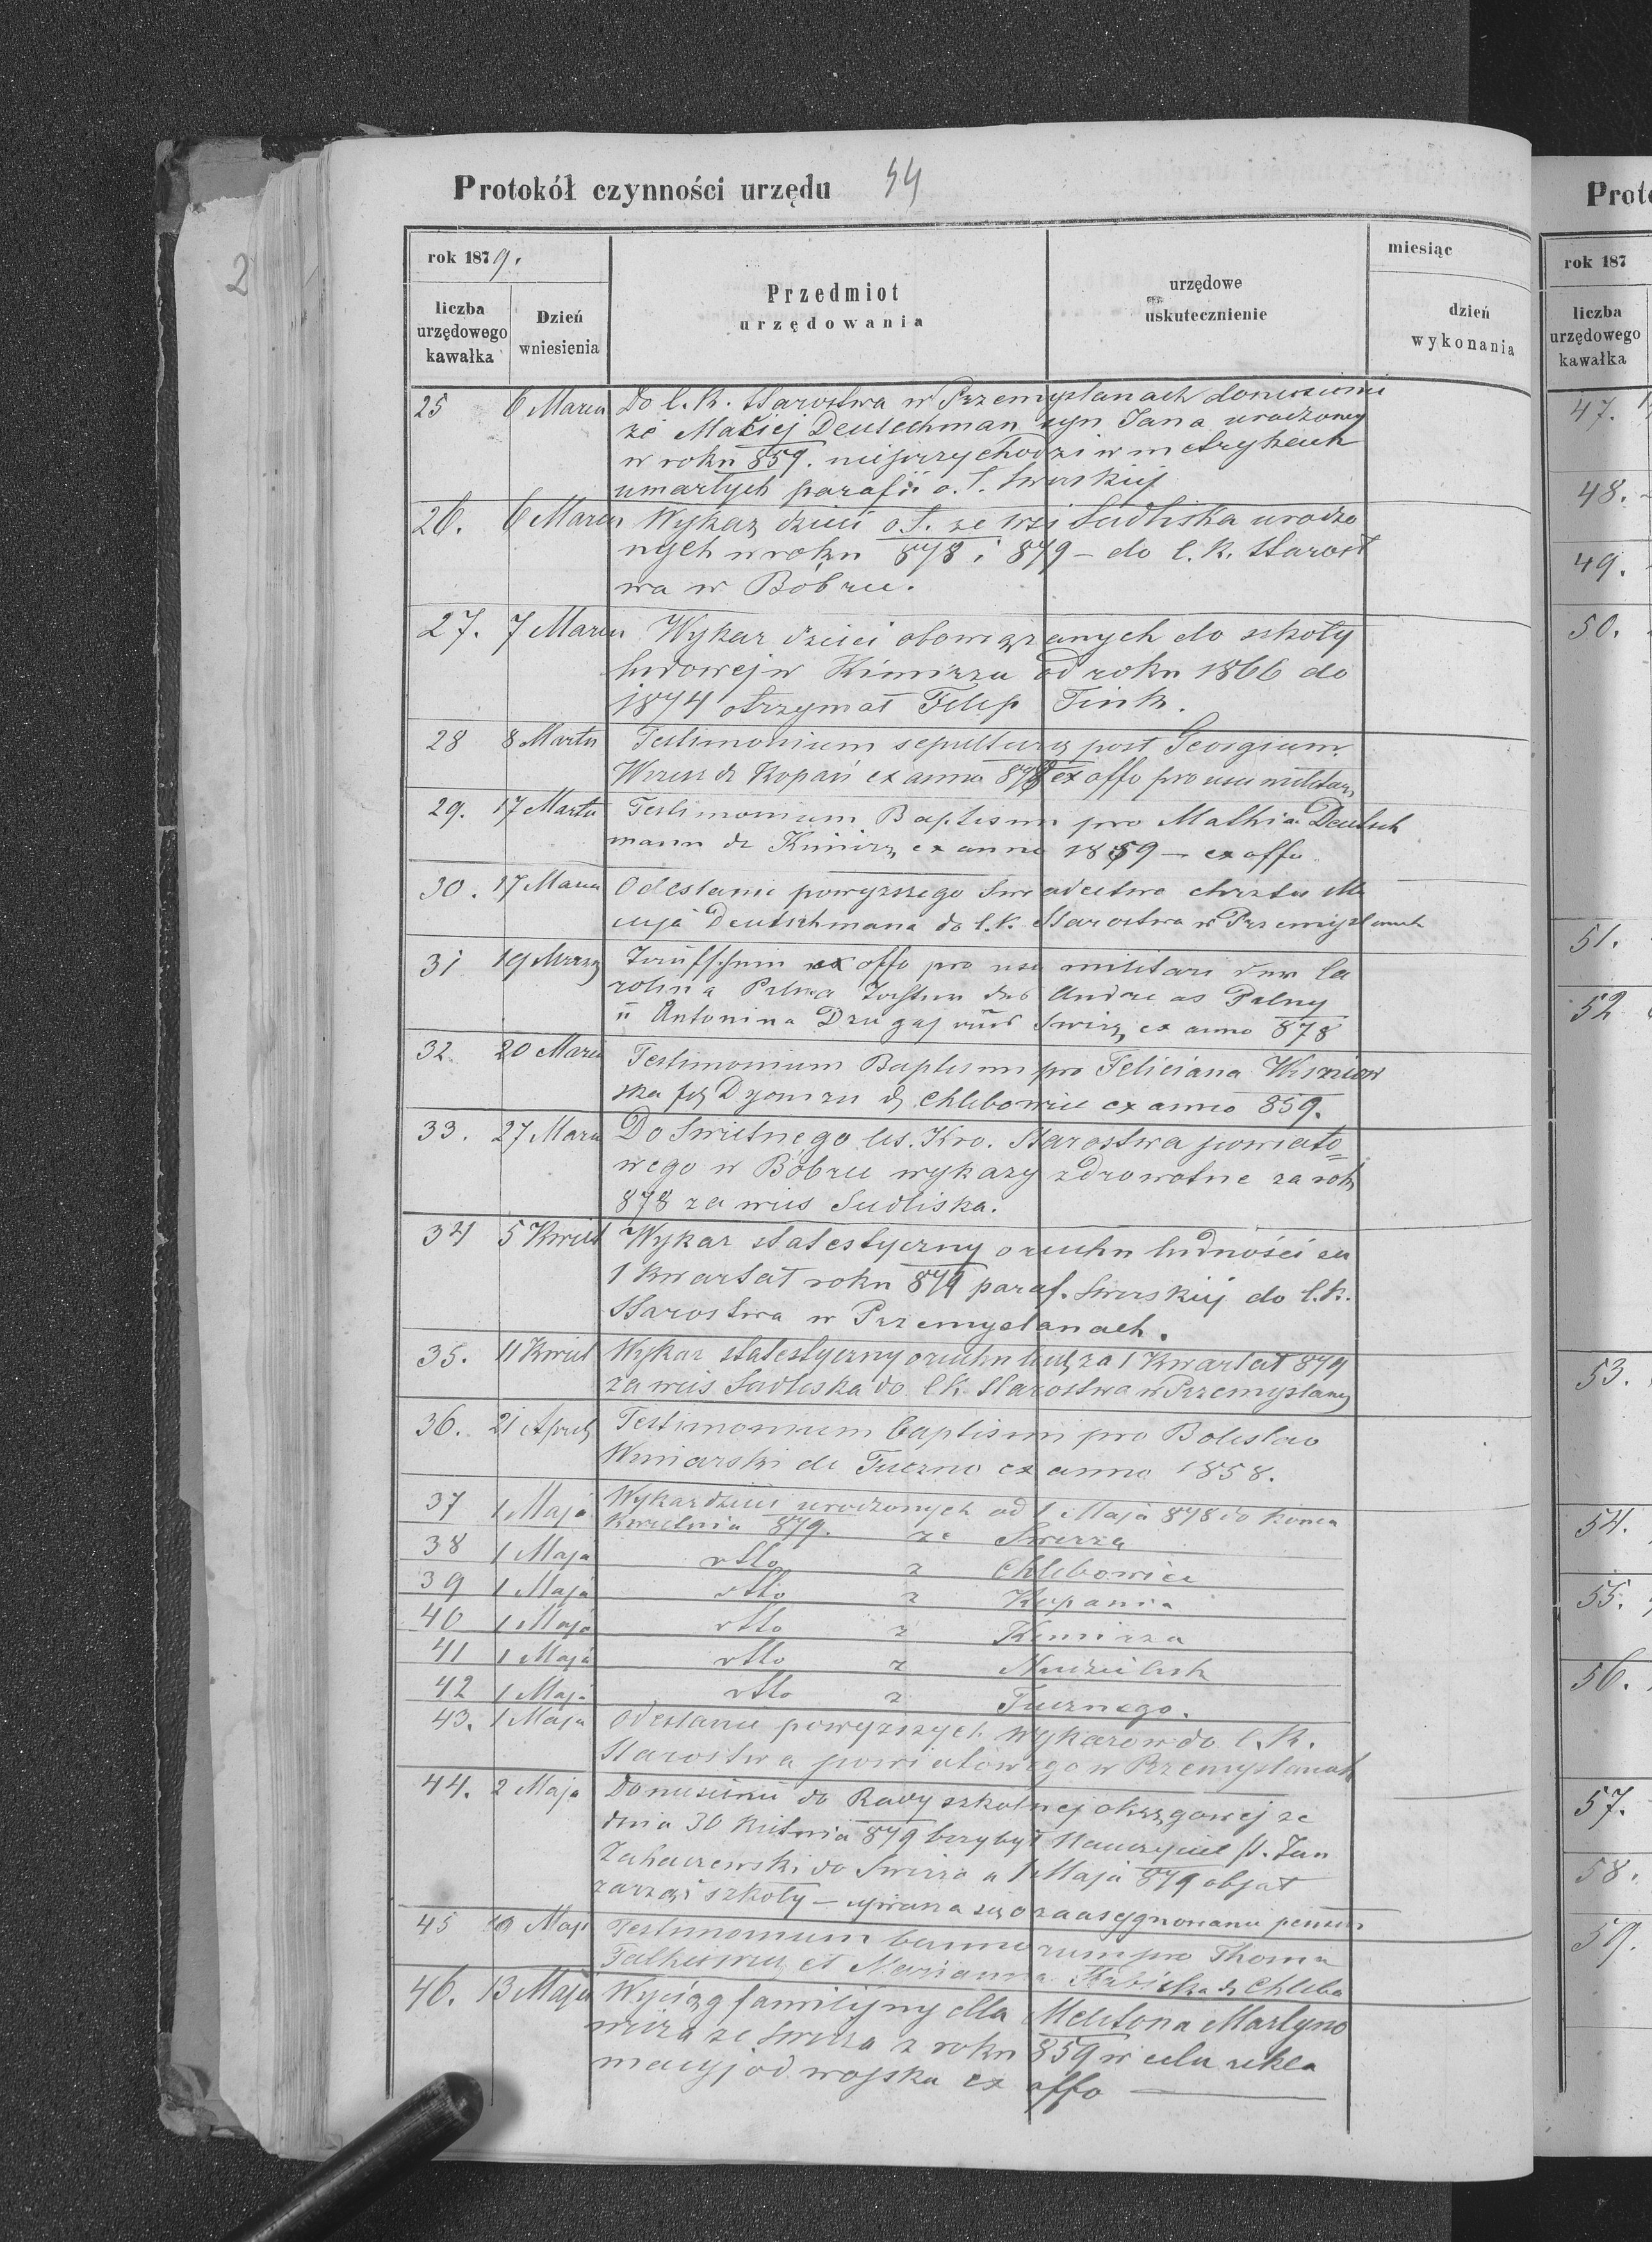 Protokół czynności urzędu 54
rok 1879.
liczba urzędowego kawałka
Dzień wniesienia
Przedmiot urzędowania
urzędowe uskutecznienie
miesiąc
dzień wykonania
25 6 Marca Do C. K. Starostwa w Przemyslanach doniesienie
że Maciej Deutschman syn Jana urodzony
w roku 859. nieprzychodzi w metrykach
umarłych parafii o. ł. Swirskiej
26. 6 Marca Wykaz dzieci o.ł. ze wsi Siedliska urodzo
nych w roku 878 i 879 – do C. K. Starost
wa w Bóbrce.
27. 7 Marca Wykaz dzieci obowiązanych do szkoły
ludowej w Kimirzu od roku 1866 do
1874 otrzymał Filip Fink.
28 8 Martii Testimonium sepulturae post Georgium
de Kopań ex anno 878 ex offo pro usu militari
29. 17 Martii Testimonium Baptismi pro Mathia Deutsch
mann de Kimirz ex anno 1859 – ex offo
30. 17 Marca Odesłanie powyższego świadectwa chrztu Ma
cieja Deutschmana do C. K. Starostwa w Przemyslanach
31 19 Marca ex offo pro usu militari Ca
rolina Palna Andreas Palny
Antonina Drugaj Swirz ex anno 878
32. 20 Marca Testimonium Baptismi pro Feliciana Wiszniow
ska de Chlebowice ex anno 859.
33. 27 Marca Do Swietnego Ces. Kro. Starostwa powiato=
wego w Bóbrce wykazy zdrowotne za rok
878 za wieś Siedliska.
34 5 Kwiet Wykaz statestyczny o ruchu ludności za
1 kwartał roku 879 paraf. Swirskiej do C. K.
Starostwa w Przemyslanach.
35. 11 Kwiet Wykaz statestyczny o ruchu lud. za 1 Kwartał 879
za wieś Siedliska do C K Starostwa w Przemyslany
36. 21 Aprilis Testimonium baptismi pro Boleslao
Winiarski de Tuczno ex anno 1858.
37 1 Maja Wykaz dzieci urodzonych od 1 Maja 878 do konca
Kwietnia 879. ze Swirza
38 1 Maja dtto z Chlebowice
39 1 Maja dtto z Kopania
40 1 Maja dtto z Kimirza
41 1 Maja dtto z
42 1 Maja dtto z Tucznego.
43. 1 Maja Odesłanie powyższych wykazow do C. K.
Starostwa powiatowego w Przemyslanach
44. 2 Maja Doniesienie do Rady szkolnej okręgowej ze
dnia 30 Kwietnia 879 przybył Nauczyciel p. Jan
Zahaczewski do Swirza a 1 Maja 879 objął
zarząd szkoły – uprasza się o zaasygnowanie pensii
45 10 Maja Testimonium bannorum pro Thoma
et Marianna de Chlebo
46. 13 Maja Wyciąg familijny dla Meletona Martyno
wicza ze Swirza z roku 859 w celu rekla
macyj od wojska ex offo
2
Prot
rok 187
liczba urzędowego kawałka
47.
48.
49.
50.
51.
52
53.
54.
55.
56.
57.
58.
59.